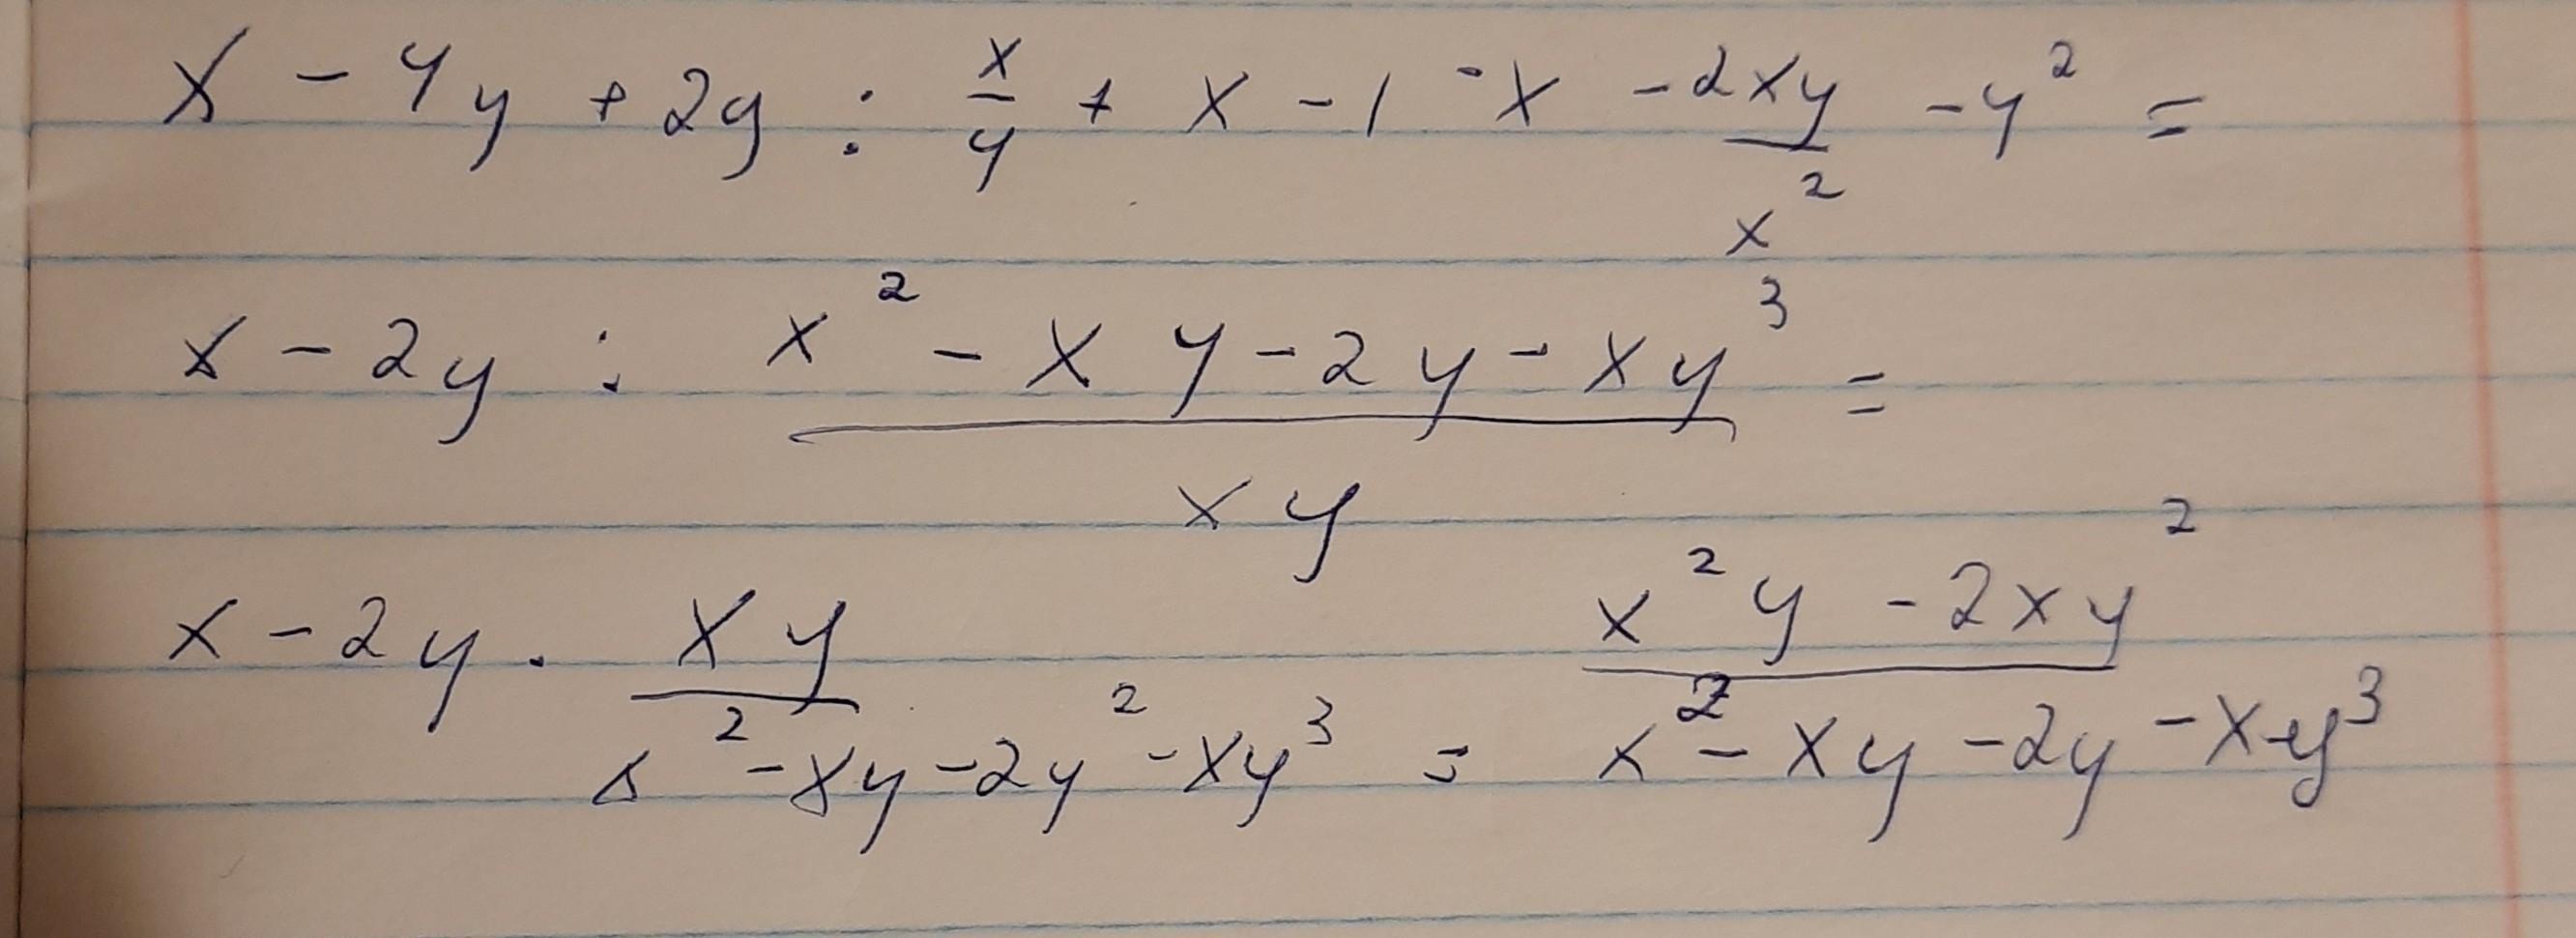 x - 4y + 2y : x/y + x - 1 - x - 2xy/x² - y² =
x - 2y : (x² - xy - 2y - xy³)/(xy) =
x - 2y · xy/(x² - xy - 2y² - xy³) = (x²y - 2xy²)/(x² - xy - 2y - xy³)